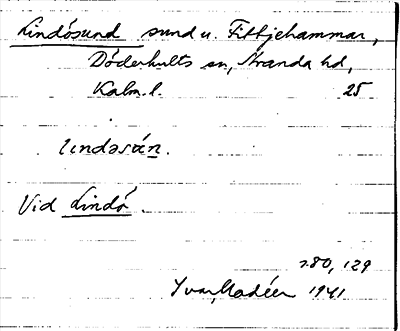 Lindösund sund u. Fittjehammar,
Döderhults sn, Stranda hd,
Kalm. l. 25
lindəsún.
Vid Lindö.
s80, 129
Yvar Modéer 1941